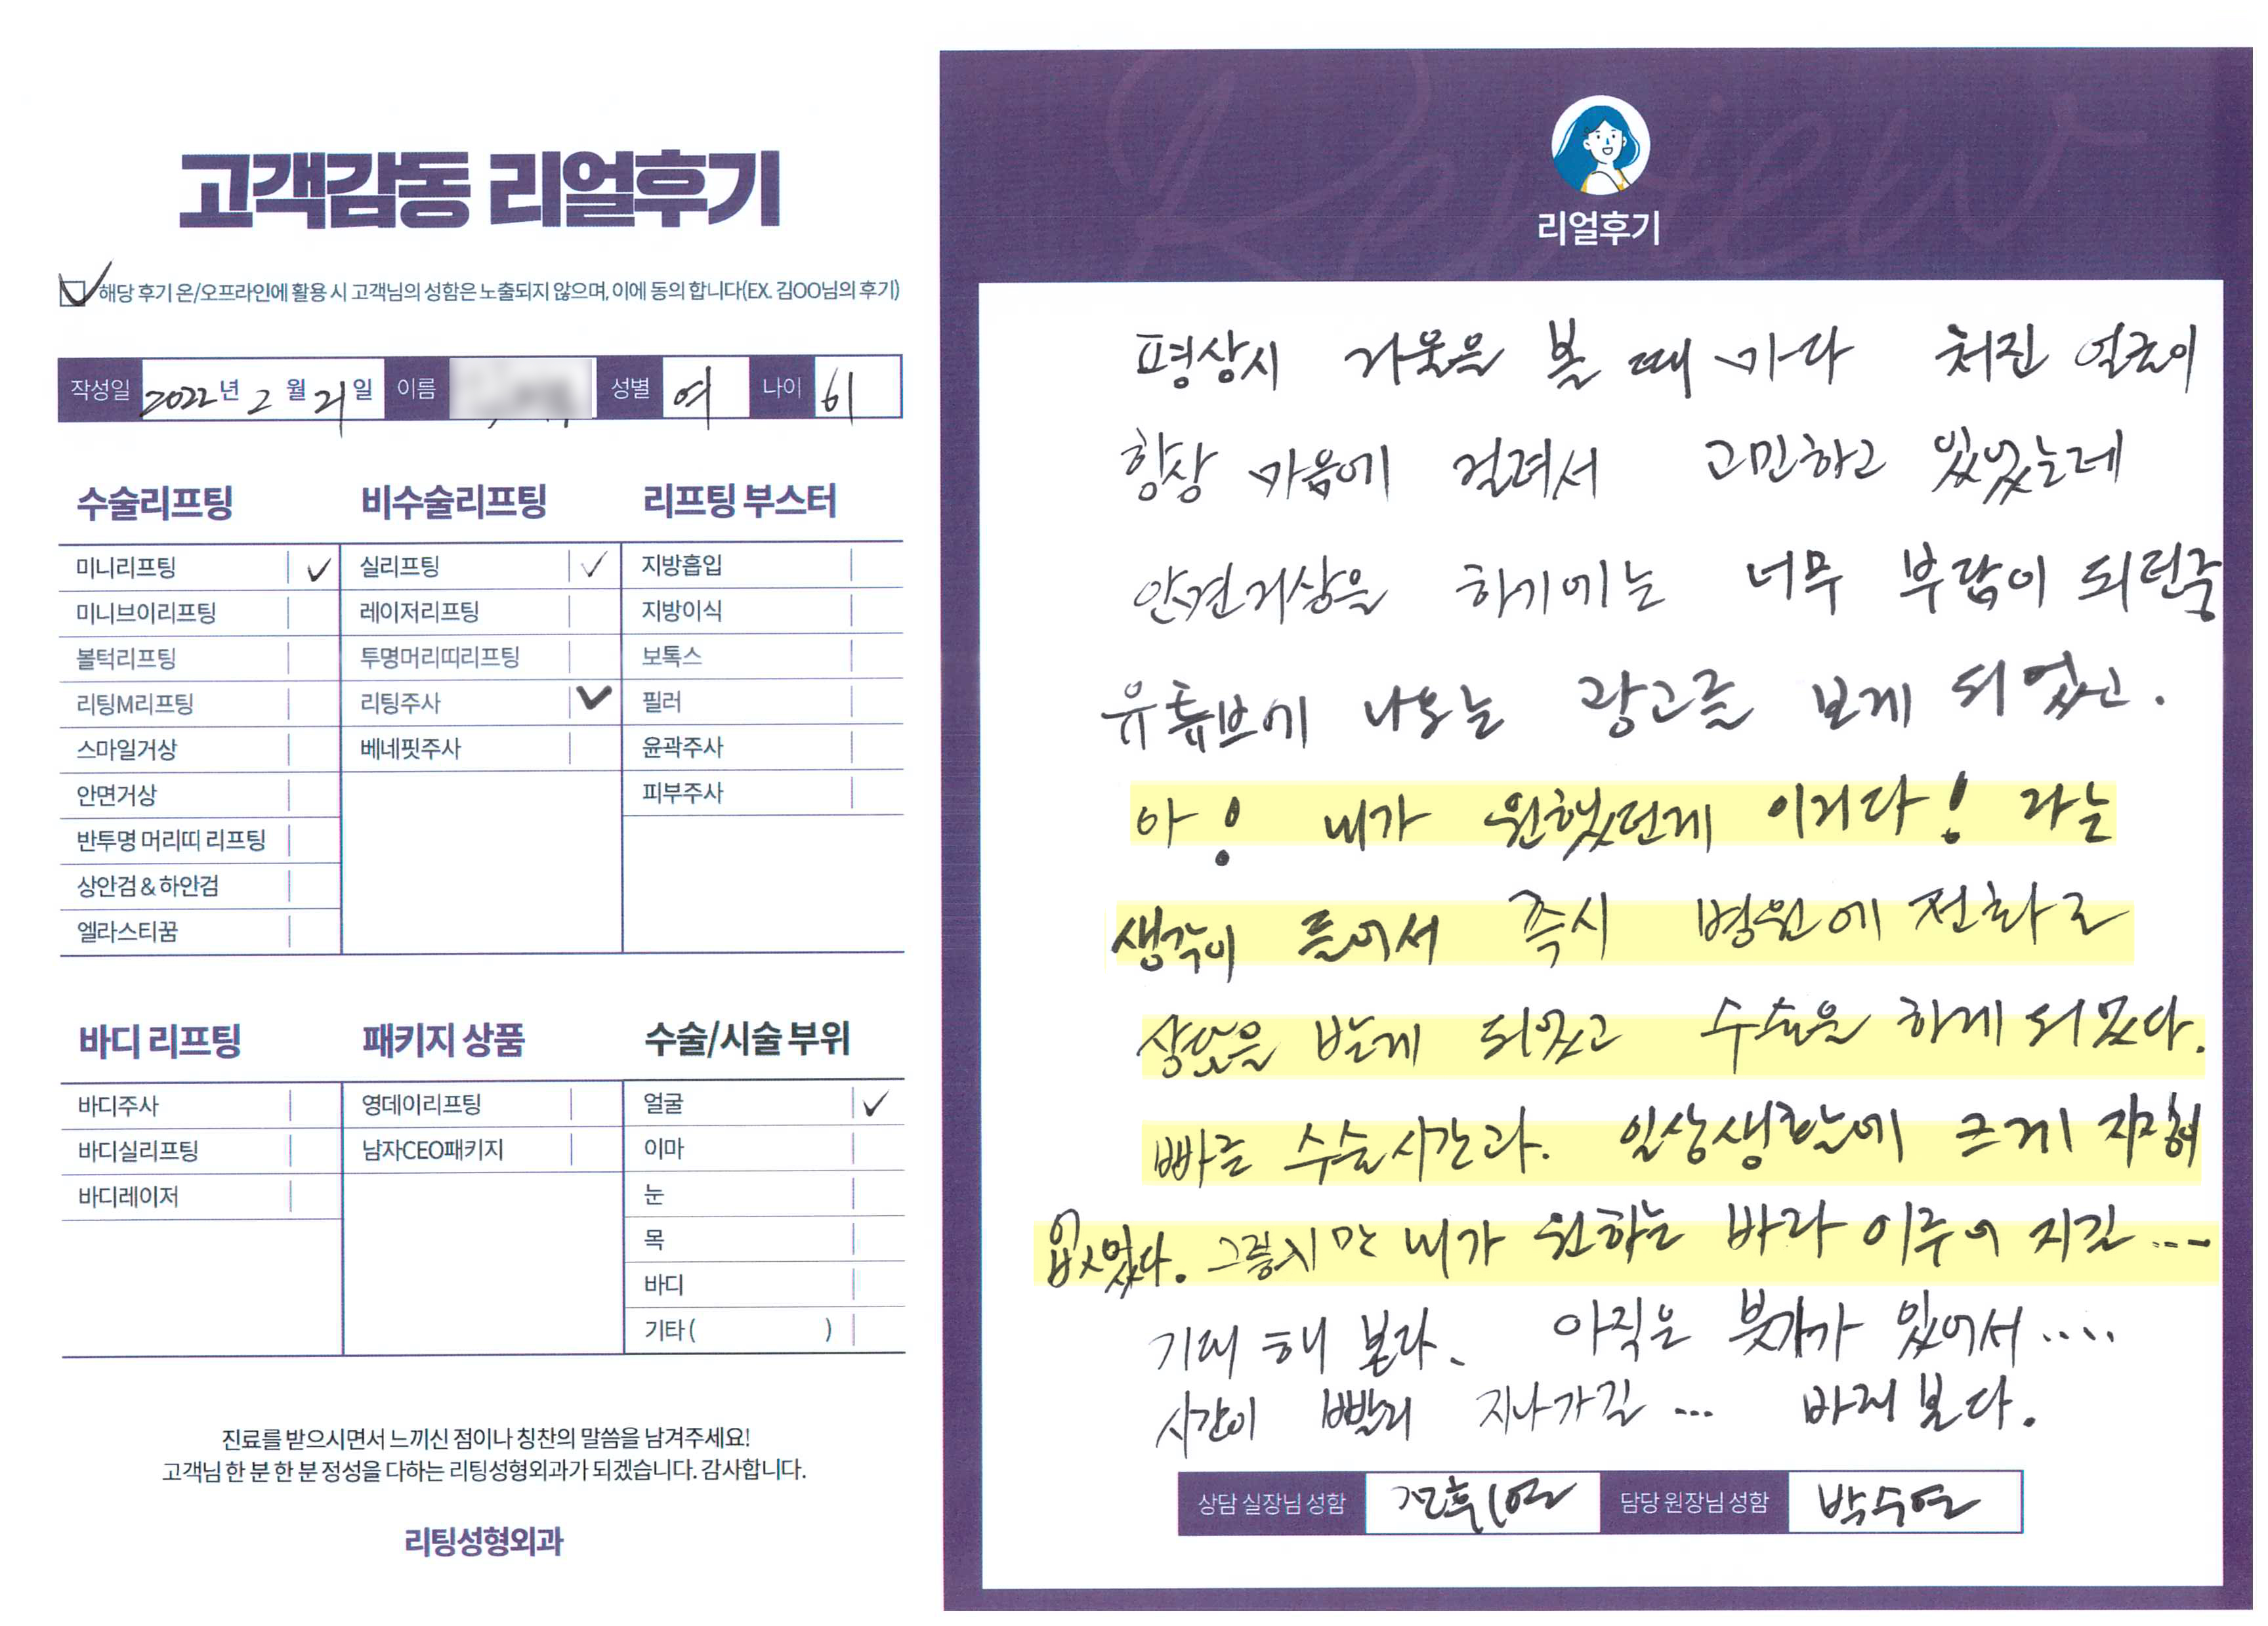 고객감동 리얼후기
해당 후기 온/오프라인에 활용 시 고객님의 성함은 노출되지 않으며, 이에 동의 합니다(EX. 김OO님의 후기)
작성일 2022년 2월 21일 이름 성별 여 나이 61
수술리프팅
미니리프팅
미니브이리프팅
볼턱리프팅
리팅M리프팅
스마일거상
안면거상
반투명 머리띠 리프팅
상안검 & 하안검
엘라스티꿈
비수술리프팅
실리프팅
레이저리프팅
투명머리띠리프팅
리팅주사
베네핏주사
리프팅 부스터
지방흡입
지방이식
보톡스
필러
윤곽주사
피부주사
바디 리프팅
바디주사
바디실리프팅
바디레이저
패키지 상품
영데이리프팅
남자CEO패키지
수술/시술 부위
얼굴
이마
눈
목
바디
기타 ( )
진료를 받으시면서 느끼신 점이나 칭찬의 말씀을 남겨주세요!
고객님 한 분 한 분 정성을 다하는 리팅성형외과가 되겠습니다. 감사합니다.
리팅성형외과
Review
리얼후기
평상시 거울을 볼 때 마다 처진 얼굴이
항상 마음에 걸려서 고민하고 있었는데
안면거상을 하기에는 너무 부담이 되던중
유튜브에 나오는 광고를 보게 되었고.
아! 내가 원했던게 이거다! 라는
생각이 들어서 즉시 병원에 전화로
상담을 받게 되었고 수술을 하게 되었다.
빠른 수술시간과. 일상생활에 크게 지장이
없었다. 그렇지만 내가 원하는 바라 이루어 지길 ...
기대 해 본다. 아직은 붓기가 있어서 ....
시간이 빨리 지나가길 ... 바래 본다.
상담 실장님 성함 담당 원장님 성함 박수연